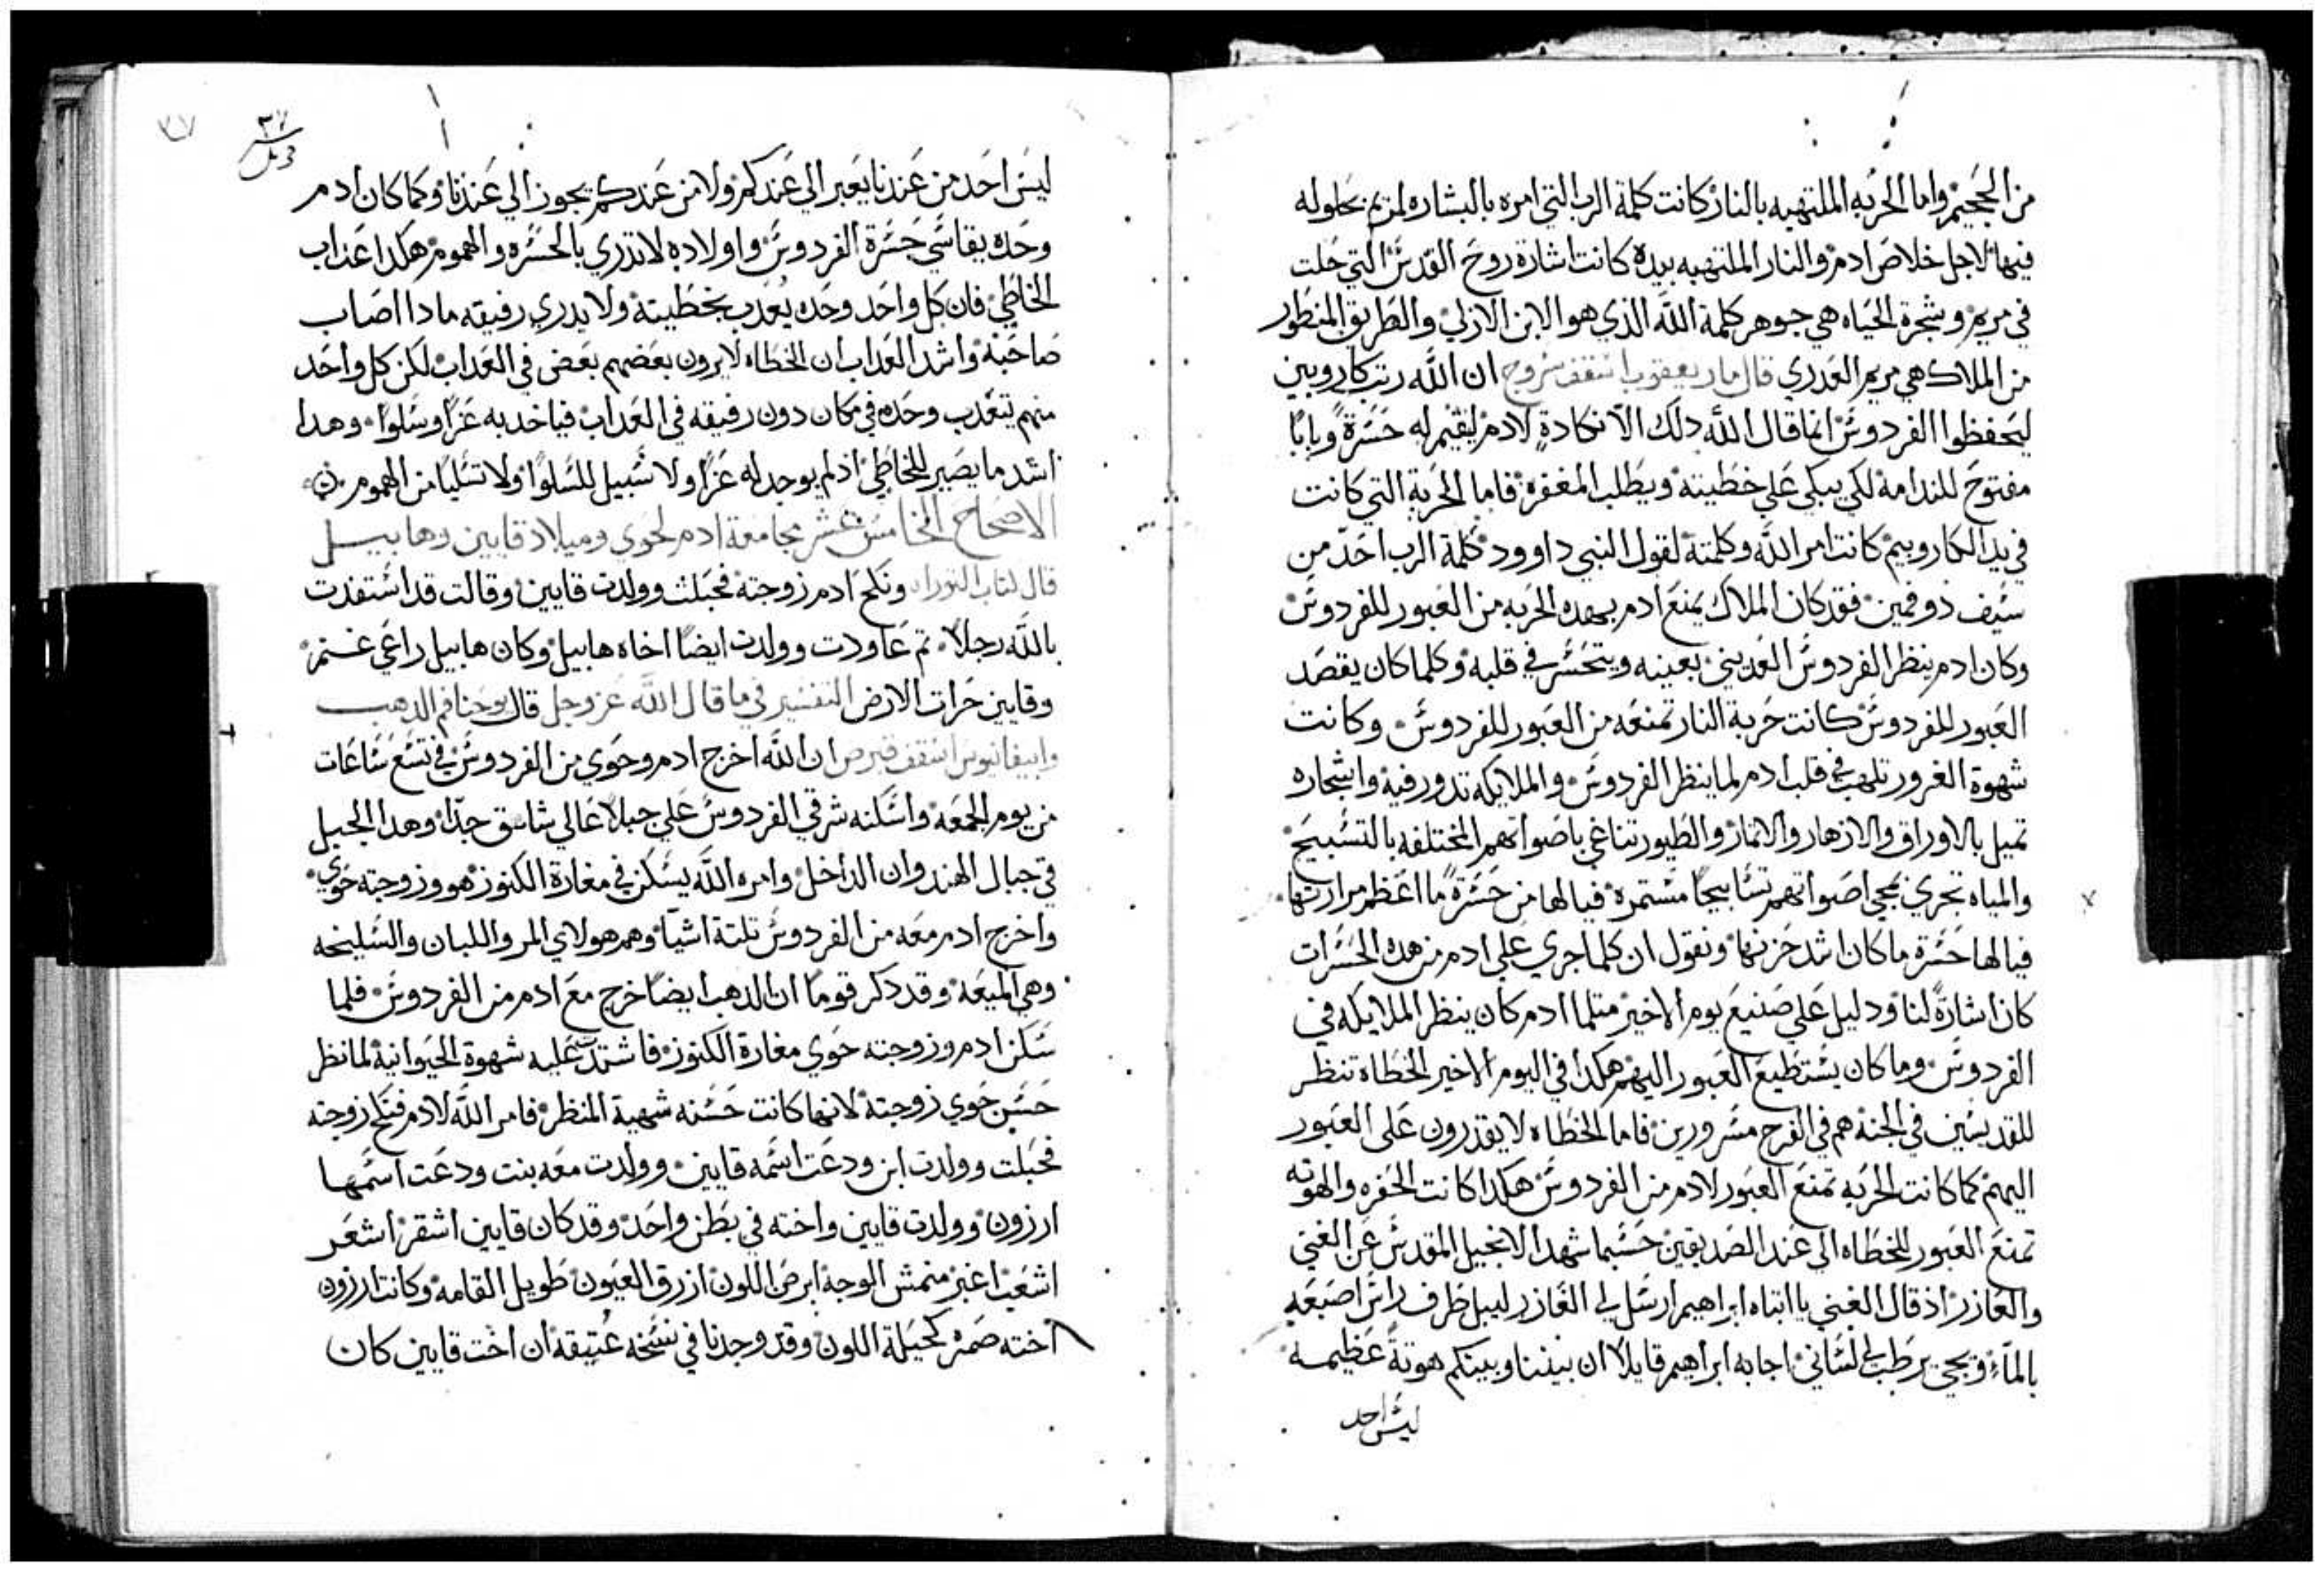 من الجحيم واما الحربه الملتهبه بالنار كانت كلمة الرب التي امره بالبشاره لمريم بحلوله
فيها لاجل خلاص ادم والنار الملتهبه بيده كانت اشارة روح القدس التي حلت
في مريم وشجرة الحياه هي جوهر كلمة الله الذي هو الابن الازلي والطريق المنطور
من الملاك هي مريم العدري قال مار يعقوب اسقف سروج ان الله رتب كاروبين
ليحفظوا الفردوس انما قال الله دلك الا نكادة لادم ليقيم له حسرة وبابا
مفتوح للندامه لكي يبكي علي خطيته ويطلب المغفره فاما الحربة التي كانت
في يد الكاروبيم كانت امر الله وكلمته لقول النبي داوود كلمة الرب احد من
سيف دو فمين فقد كان الملاك يمنع ادم بهده الحربه من العبور للفردوس
وكان ادم ينظر الفردوس العديني بعينه ويتحسر في قلبه وكلما كان يقصد
العبور للفردوس كانت حربة النار تمنعه من العبور للفردوس وكانت
شهوة الغرور تلهب في قلب ادم لما ينظر الفردوس والملايكه تدور فيه واشجاره
تميل بالاوراق والازهار والاتمار والطيور تناغي باصواتهم المختلفه بالتسبيح
والمياه تجري اصواتهم تسابيحا مستمره فيا لها من حسرة ما اعظم مرارتها
فيا لها حسرة ما كان اشد حزنها ونقول ان كلما جري علي ادم من هده الحسرات
كان اشارة لنا ودليل علي صنيع يوم الاخير متلما ادم كان ينظر الملايكه في
الفردوس وما كان يستطيع العبور اليهم هكدا في اليوم الاخير الخطاه تنظر
للقديسين في الجنه هم في الفرح مسرورين فاما الخطاه لا يقدرون على العبور
اليهم كما كانت الحربه تمنع العبور لادم من الفردوس هكدا كانت الحفره والهوته
تمنع العبور للخطاه الي عند الصديقين حسبما شهد الانجيل المقدس عن الغني
والعازر اذ قال الغني يا ابتاه ابراهيم ارسل لي العازر ليبل ظرف راس اصبعه
بالماء ويجي يرطب لي لساني اجابه ابراهيم قايلا ان بيننا وبينكم هوتة عظيمه
ليس احد
٣٧
٣٧
ليس احد من عندنا يعبر الي عندكم ولا من عندكم يجوز الي عندنا وكما كان ادم
وحده يقاسي حسرة الفردوس واولاده لا تدري بالحسره والهموم هكدا عداب
الخاطي فان كل واحد وحده يعدب بخطيته ولا يدري رفيقه مادا اصاب
صاحبه واشد العداب ان الخطاه لا يرون بعضهم بعض في العداب لكن كل واحد
منهم يتعدب وحده في مكان دون رفيقه في العداب فياخد به عزا وسلوا وهدا
اشد ما يصير للخاطي اذ لم يوجد له عزا ولا سبيل للسلوا ولا تسليا من الهموم
الاصحاح الخامس عشر مجامعة ادم لحوي وميلاد قايين وهابيل
قال كتاب التوراه ونكح ادم زوجته فحبلت وولدت قايين وقالت قد استفدت
بالله رجلا تم عاودت وولدت ايضا اخاه هابيل وكان هابيل راعي غنم
وقايين حرات الارض التفسير في ما قال الله عز وجل قال يوحنا فم الدهب
وابيفانيوس اسقف قبرص ان الله اخرج ادم وحوي من الفردوس في تسع ساعات
من يوم الجمعه واسكنه شرقي الفردوس علي جبلا عالي شاهق جدا وهدا الجبل
في جبال الهند وان الداخل وامره الله يسكن في مغارة الكنوز هو وزوجته حوي
واخرج ادم معه من الفردوس تلتة اشيا وهم هولاي المر واللبان والسليخه
وهي الميعه وقد دكر قوما ان الدهب ايضا خرج مع ادم من الفردوس فلما
سكن ادم وزوجته حوي مغارة الكنوز فاشتدت عليه شهوة الحيوانية لما نظر
حسن حوي زوجته لانها كانت حسنه شهية المنظر فامر الله لادم فنكح زوجته
فحبلت وولدت ابن ودعت اسمه قايين وولدت معه بنت ودعت اسمها
ارزون وولدت قايين واخته في بطن واحد وقد كان قايين اشقر اشعر
اشعت اغبر منمش الوجه ابرص اللون ازرق العيون طويل القامه وكانت ارزون
اخته كحيلة اللون وقد وجدنا في نسخه عتيقه ان اخت قايين كان